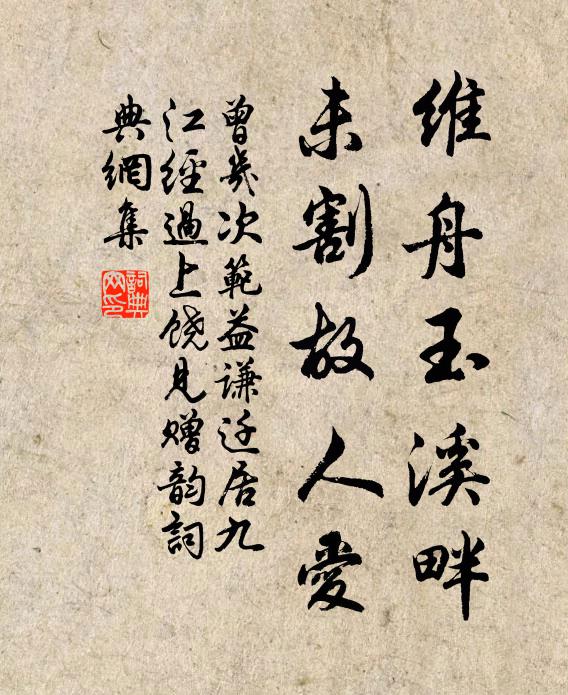 维舟玉溪畔
未割故人爱
曾几次範益谦迁居九
江经過上饶见赠韵詞
典網集
詞典网印